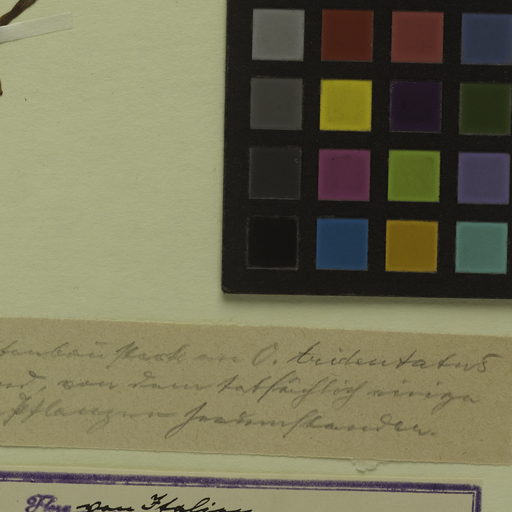 stark an O. tridentatus
von dem tatsächlich einige
Pflanzen herumstanden.
Flora von Italien